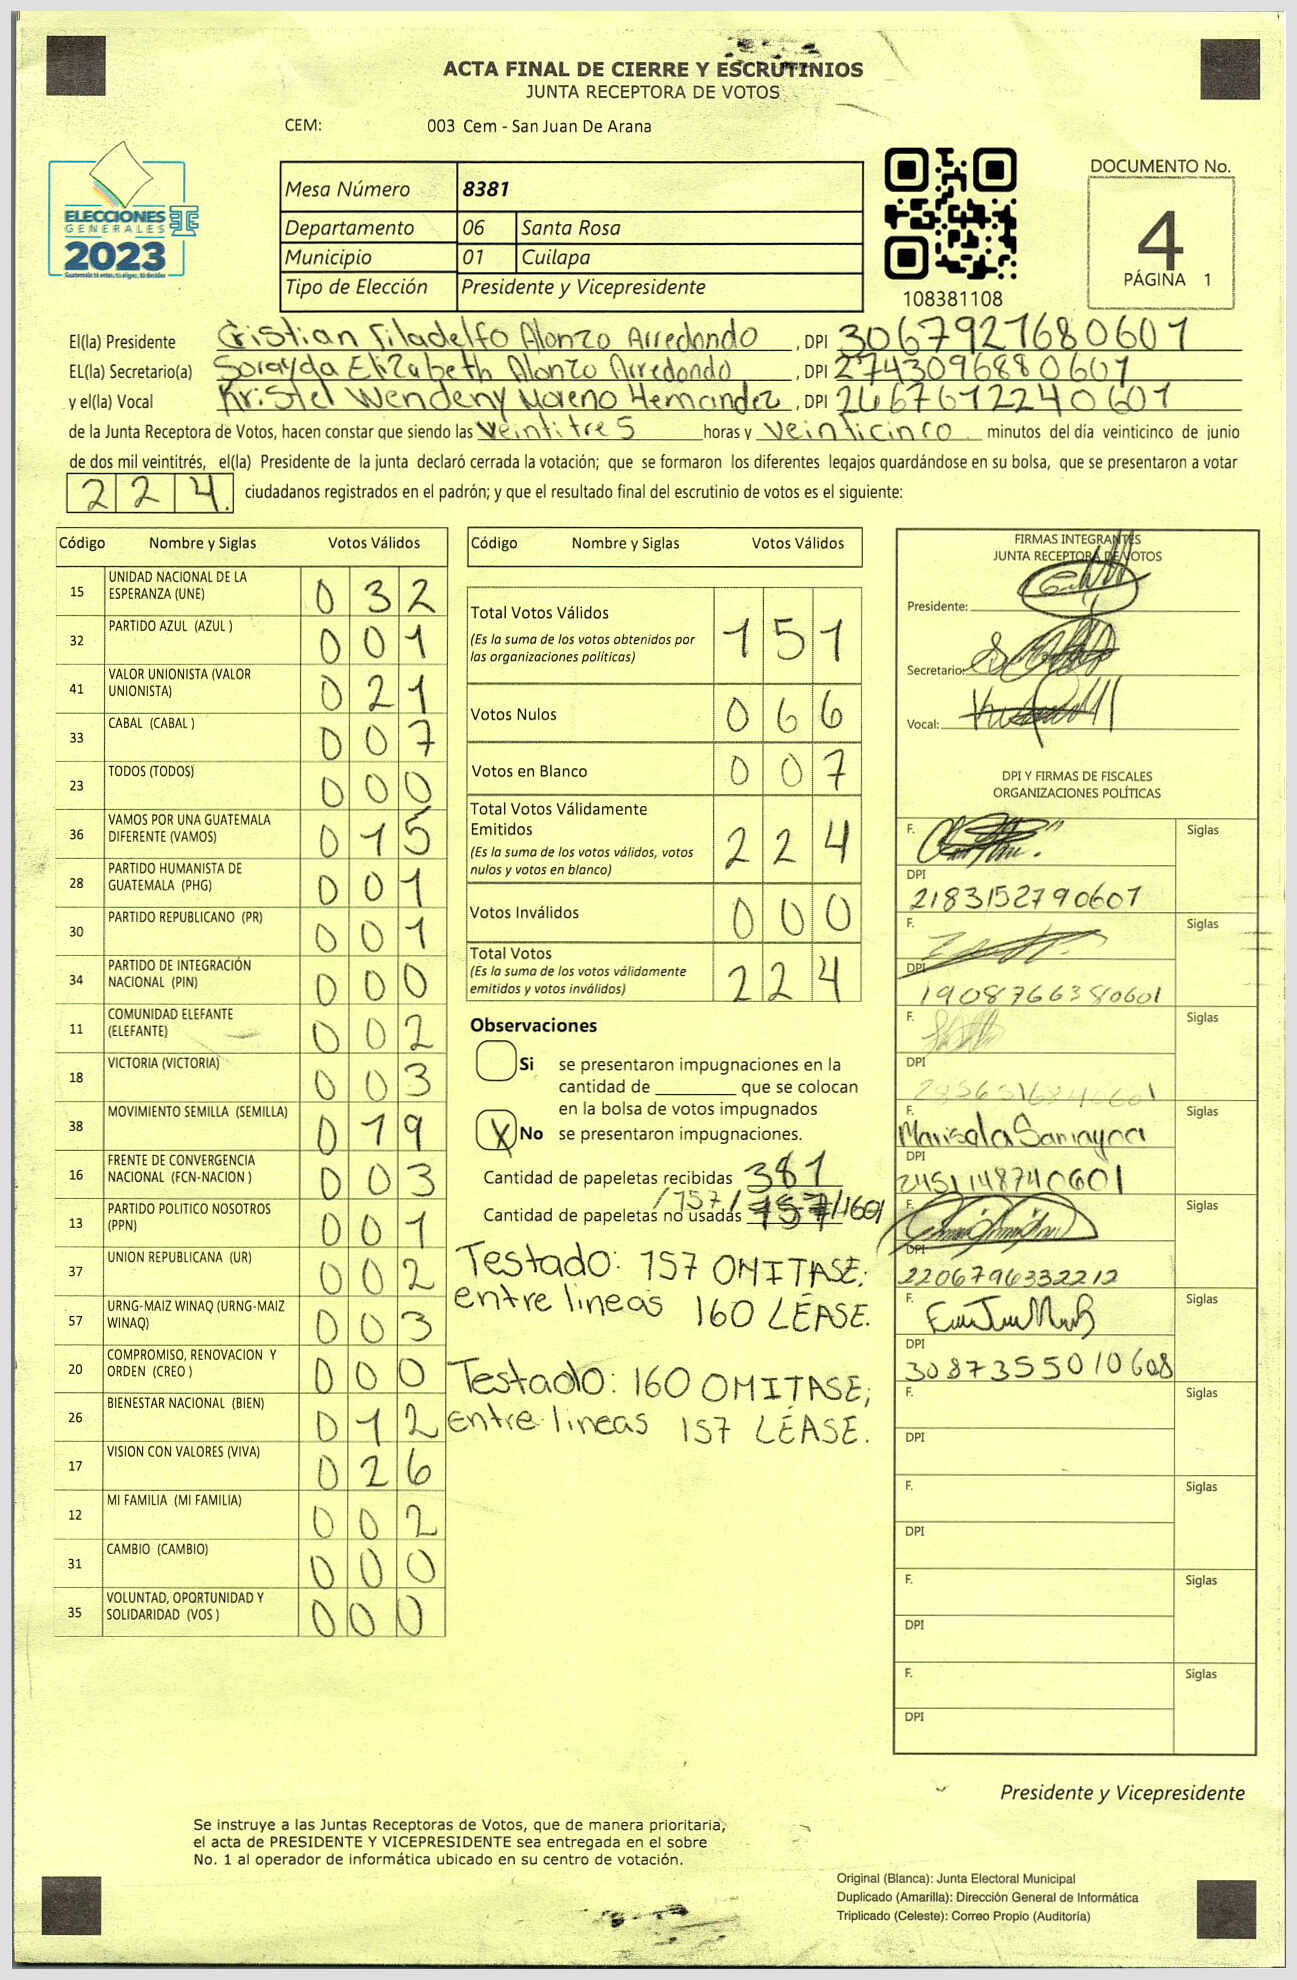 ACTA FINAL DE CIERRE Y ESCRUTINIOS
JUNTA RECEPTORA DE VOTOS
CEM: 003 Cem - San Juan De Arana
ELECCIONES
GENERALES
2023
Guatemala tú eres, tú eliges, tú decides
Mesa Número 8381
Departamento 06 Santa Rosa
Municipio 01 Cuilapa
Tipo de Elección Presidente y Vicepresidente
108381108
DOCUMENTO No.
4
PÁGINA 1
El(la) Presidente Cristian Filadelfo Alonzo Arredondo, DPI 3067921680601
EL(la) Secretario(a) Sorayda Elizabeth Alonzo Arredondo, DPI 2743096880601
y el(la) Vocal Kristel Wendeny Moreno Hernandez, DPI 2467612240601
de la Junta Receptora de Votos, hacen constar que siendo las veintitres horas y veinticinco minutos del día veinticinco de junio
de dos mil veintitrés, el(la) Presidente de la junta declaró cerrada la votación; que se formaron los diferentes legajos quardándose en su bolsa, que se presentaron a votar
224. ciudadanos registrados en el padrón; y que el resultado final del escrutinio de votos es el siguiente:
Código Nombre y Siglas Votos Válidos
15 UNIDAD NACIONAL DE LA ESPERANZA (UNE) 032
32 PARTIDO AZUL (AZUL ) 001
41 VALOR UNIONISTA (VALOR UNIONISTA) 021
33 CABAL (CABAL ) 007
23 TODOS (TODOS) 000
36 VAMOS POR UNA GUATEMALA DIFERENTE (VAMOS) 015
28 PARTIDO HUMANISTA DE GUATEMALA (PHG) 001
30 PARTIDO REPUBLICANO (PR) 001
34 PARTIDO DE INTEGRACIÓN NACIONAL (PIN) 000
11 COMUNIDAD ELEFANTE (ELEFANTE) 002
18 VICTORIA (VICTORIA) 003
38 MOVIMIENTO SEMILLA (SEMILLA) 019
16 FRENTE DE CONVERGENCIA NACIONAL (FCN-NACION ) 003
13 PARTIDO POLITICO NOSOTROS (PPN) 001
37 UNION REPUBLICANA (UR) 002
57 URNG-MAIZ WINAQ (URNG-MAIZ WINAQ) 003
20 COMPROMISO, RENOVACION Y ORDEN (CREO ) 000
26 BIENESTAR NACIONAL (BIEN) 012
17 VISION CON VALORES (VIVA) 026
12 MI FAMILIA (MI FAMILIA) 002
31 CAMBIO (CAMBIO) 000
35 VOLUNTAD, OPORTUNIDAD Y SOLIDARIDAD (VOS ) 000
Código Nombre y Siglas Votos Válidos
Total Votos Válidos 151
(Es la suma de los votos obtenidos por
las organizaciones políticas)
Votos Nulos 066
Votos en Blanco 007
Total Votos Válidamente
Emitidos 224
(Es la suma de los votos válidos, votos
nulos y votos en blanco)
Votos Inválidos 000
Total Votos 224
(Es la suma de los votos válidamente
emitidos y votos inválidos)
Observaciones
Si se presentaron impugnaciones en la
cantidad de ________ que se colocan
en la bolsa de votos impugnados
X No se presentaron impugnaciones.
Cantidad de papeletas recibidas 381
Cantidad de papeletas no usadas /157/ 157 /160/
Testado: 157 OMITASE;
entre lineas 160 LÉASE.
Testado: 160 OMITASE;
entre lineas 157 LÉASE.
FIRMAS INTEGRANTES
JUNTA RECEPTORA DE VOTOS
Presidente:
Secretario:
Vocal:
DPI Y FIRMAS DE FISCALES
ORGANIZACIONES POLÍTICAS
F. Siglas
DPI
2183152790601
F. Siglas
DPI
1908766380601
F. Siglas
DPI
F. Siglas
Marisela Samayoa
DPI
2451148740601
F. Siglas
DPI
2206796332212
F. Siglas
DPI
3087355010608
F. Siglas
DPI
F. Siglas
DPI
F. Siglas
DPI
F. Siglas
DPI
Presidente y Vicepresidente
Se instruye a las Juntas Receptoras de Votos, que de manera prioritaria,
el acta de PRESIDENTE Y VICEPRESIDENTE sea entregada en el sobre
No. 1 al operador de informática ubicado en su centro de votación.
Original (Blanca): Junta Electoral Municipal
Duplicado (Amarilla): Dirección General de Informática
Triplicado (Celeste): Correo Propio (Auditoría)